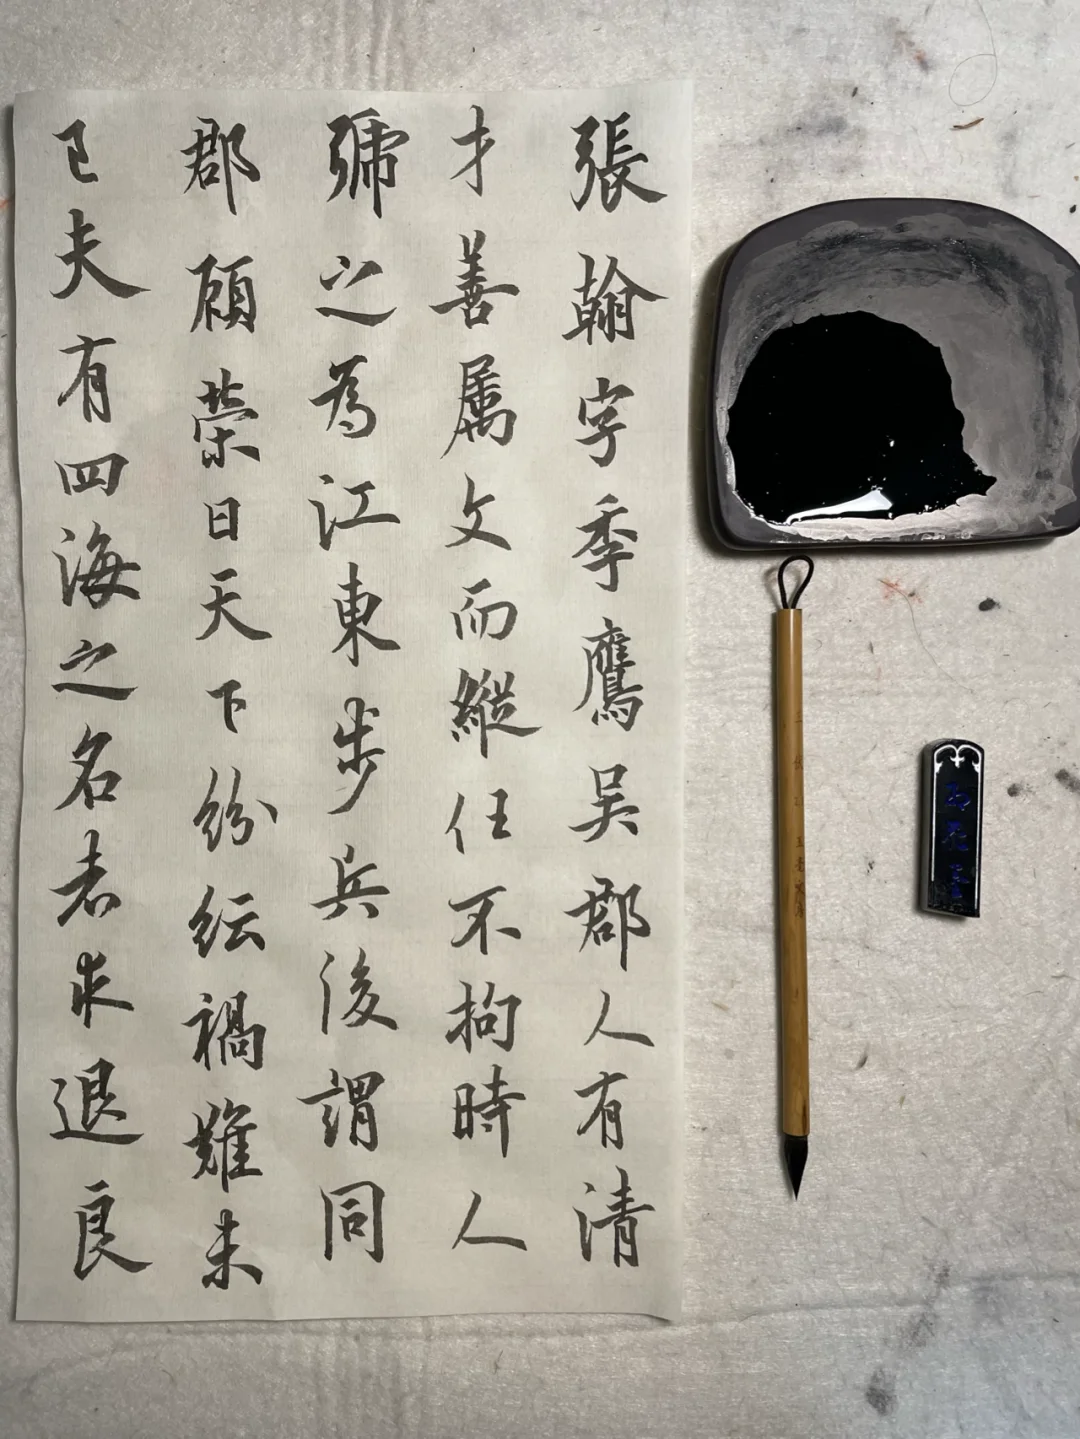 張翰字季鷹吳郡人有清
才善属文而縱任不拘時人
號之為江東步兵後謂同
郡顧榮曰天下紛紜禍難未
已夫有四海之名者求退良